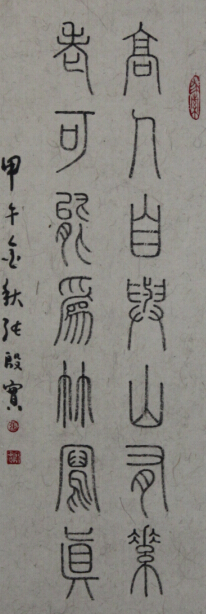 高人自與山有素
老可能爲竹寫真
甲午金秋張殷實